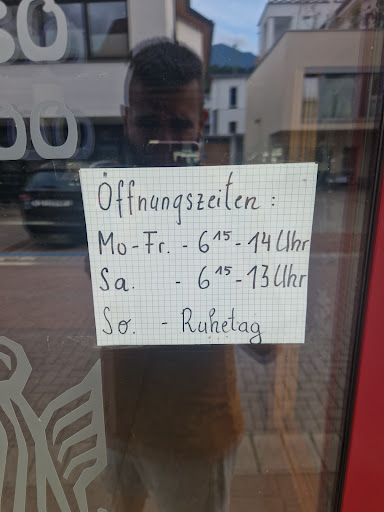 SO
00
Öffnungszeiten :
Mo-Fr. - 6¹⁵ - 14 Uhr
Sa. - 6¹⁵ - 13 Uhr
So. - Ruhetag